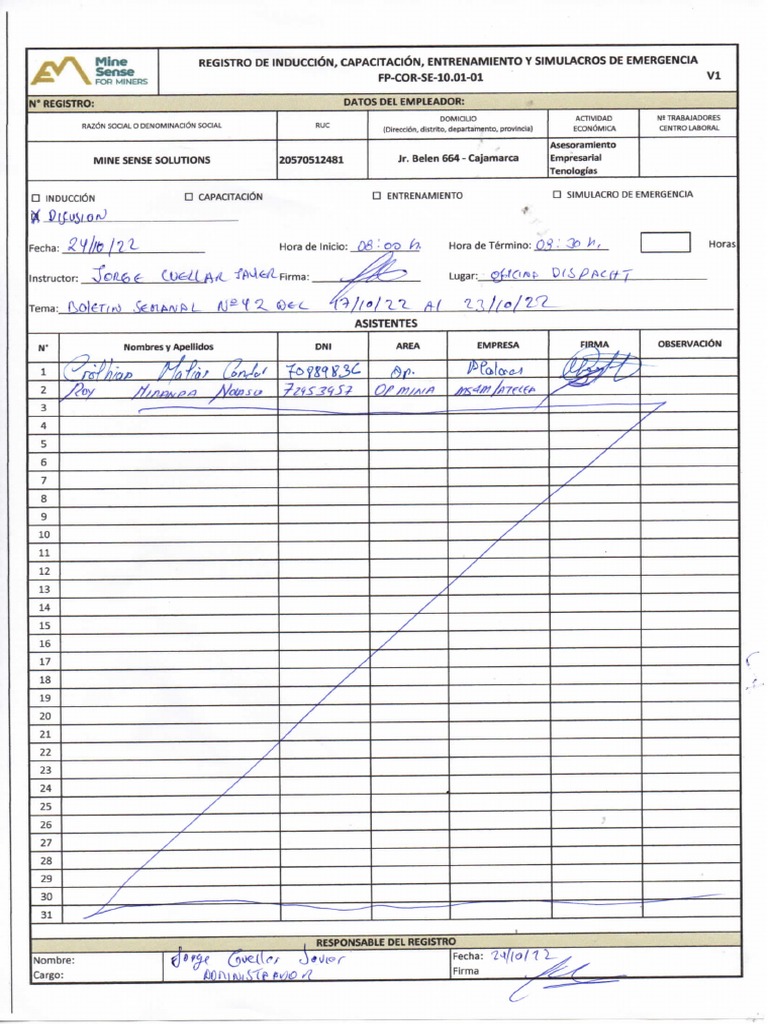 Mine Sense FOR MINERS
REGISTRO DE INDUCCIÓN, CAPACITACIÓN, ENTRENAMIENTO Y SIMULACROS DE EMERGENCIA
FP-COR-SE-10.01-01
V1
N° REGISTRO: DATOS DEL EMPLEADOR:
RAZÓN SOCIAL O DENOMINACIÓN SOCIAL RUC DOMICILIO (Dirección, distrito, departamento, provincia) ACTIVIDAD ECONÓMICA Nº TRABAJADORES CENTRO LABORAL
MINE SENSE SOLUTIONS 20570512481 Jr. Belen 664 - Cajamarca Asesoramiento Empresarial Tenologías
INDUCCIÓN CAPACITACIÓN ENTRENAMIENTO SIMULACRO DE EMERGENCIA
X DIFUSION
Fecha: 24/10/22 Hora de Inicio: 08:00 h. Hora de Término: 08:30 h. Horas
Instructor: JORGE CUELLAR JAVIER Firma: Lugar: OFICINA DISPACHT
Tema: BOLETIN SEMANAL Nº42 DEL 17/10/22 Al 23/10/22
ASISTENTES
N° Nombres y Apellidos DNI AREA EMPRESA FIRMA OBSERVACIÓN
1 Cristhian Matias Condor 70989836 Op.
2 Roy MIRANDA 72953957 OP MINA
3
4
5
6
7
8
9
10
11
12
13
14
15
16
17
18
19
20
21
22
23
24
25
26
27
28
29
30
31
RESPONSABLE DEL REGISTRO
Nombre: Jorge Cuellar Javier Fecha: 24/10/22
Cargo: ADMINISTRADOR Firma